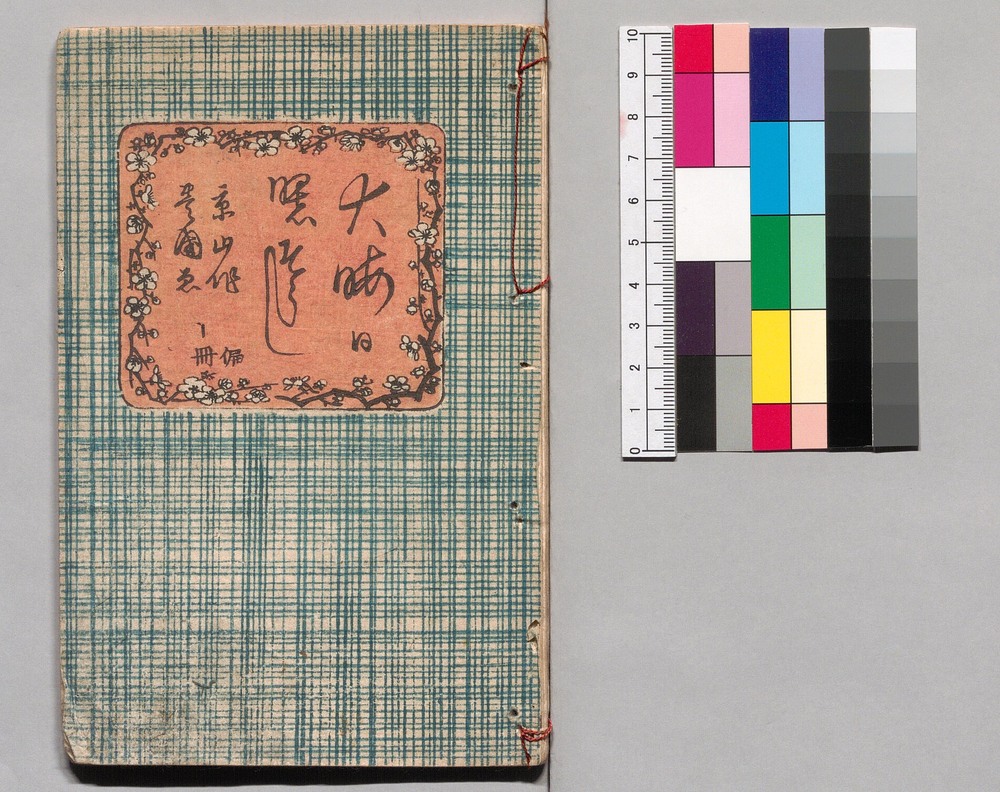 大晦日
曙
京山作
豊國画
編
冊
10
9
8
7
6
5
4
3
2
1
0